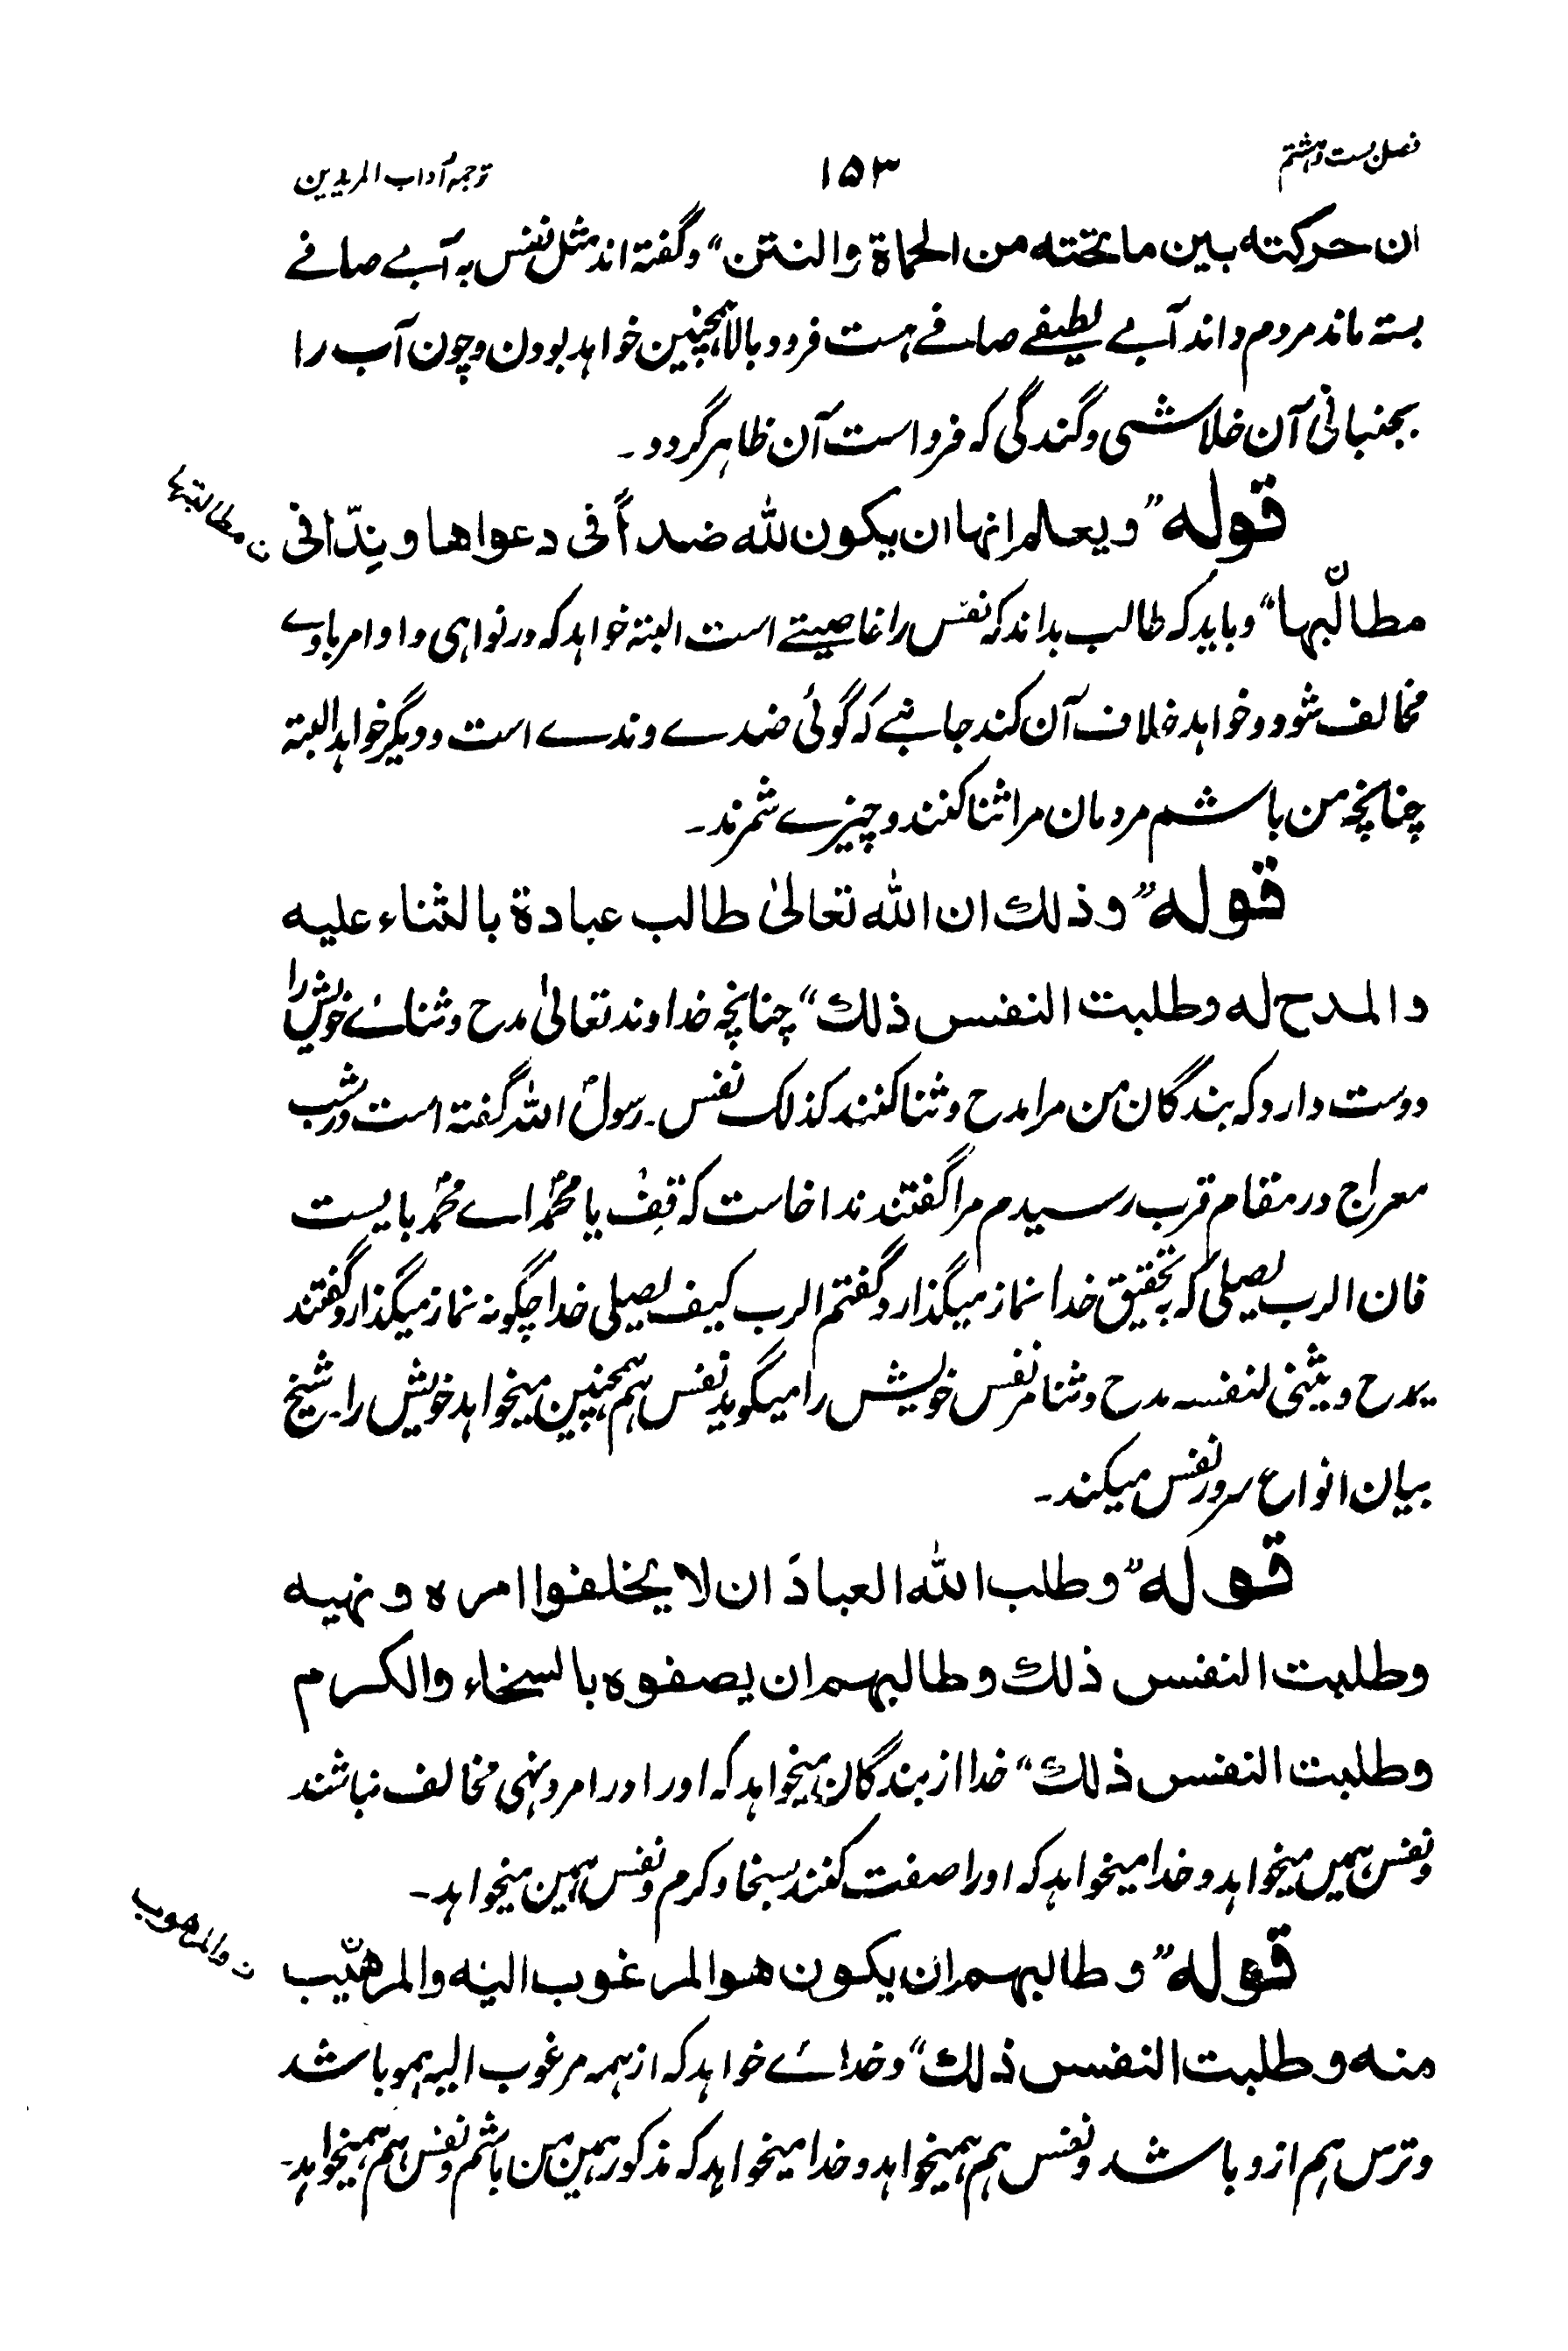 فصل بست و هشتم
۱۵۳
ترجمہ آداب المریدین
ان حركته بين ما تحته من الحماة والنتن" وگفتہ اند مثل نفس بہ آبے صافے
بستہ ماند مردم داند آبے لطیفے صافے ہست فرود بالا ہمچنین خواہد بودن و چون آب را
بجنبانی آن خلاشی و گندگی کہ فرو است آن ظاہر گردد۔
قوله "ويعلم انها ان يكون لله ضداً فی دعواها ونِدّاً فی
ن مطالبتها
مطالبها" و باید کہ طالب بداند کہ نفس را خاصیتے است البتہ خواہد کہ در نواہی و اوامر باوے
مخالف شود و خواہد خلاف آن کند جانبے کہ گوئی ضدے و ندے است و دیگر خواہد البتہ
چنانچہ من باشم مردمان مرا ثنا کنند و چیزے شمرند۔
قوله "وذلك ان الله تعالیٰ طالب عبادة بالثناء عليه
والمدح له وطلبت النفس ذلك" چنانچہ خداوند تعالیٰ مدح و ثنائے خویش را
دوست دارد کہ بندگان من مرا مدح و ثنا کنند کذلک نفس۔ رسولؐ اللہ گفتہ است در شب
معراج در مقام قرب رسیدم مرا گفتند ندا خاست کہ قِفْ یا محمدؐ اے محمدؐ بایست
فان الرب یصلی کہ بہ تحقیق خدا نماز میگذارد گفتم الرب کیف یصلی خدا چگونہ نماز میگذارد گفتند
یمدح و یثنی لنفسہ مدح و ثنا مر نفس خویش را میگوید نفس ہم ہمچنین میخواہد خویش را۔ شیخ
بیان انواع سرور نفس میکند۔
قوله "وطلب الله العبادَ ان لا يخلفوا امره ونهيه
وطلبت النفس ذلك وطالبهم ان يصفوه بالسخاء والكرم
وطلبت النفس ذلك" خدا از بندگان میخواہد کہ او را در امر و نہی مخالف نباشند
و نفس ہمیں میخواہد و خدا میخواہد کہ او را صفت کنند بسخا و کرم و نفس ہمین میخواہد۔
قوله "وطالبهم ان يكون هو المرغوب اليه والمرهيب
ن والمرهوب
منه وطلبت النفس ذلك" و خدائے خواہد کہ از ہمہ مرغوب الیہ ہمو باشد
و ترس ہم از و باشد و نفس ہم ہمیخواہد و خدا میخواہد کہ مذکور ہمین من باشم و نفس ہم ہمیخواہد۔